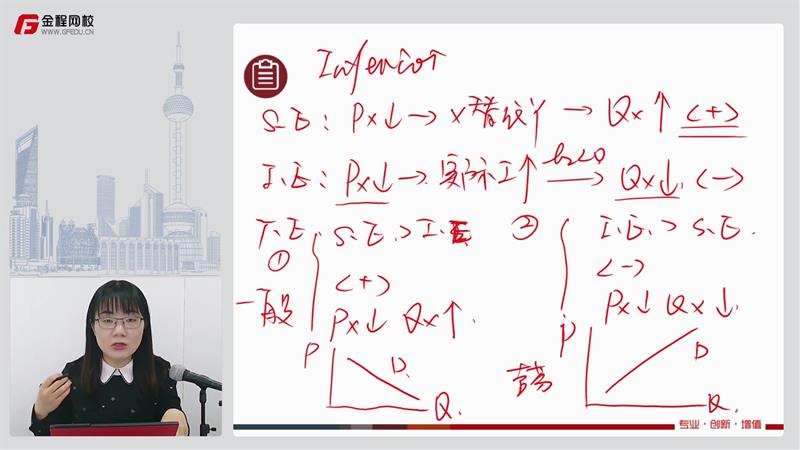 金程网校
WWW.GFEDU.CN
Inferior
S.E: Px↓ → x替代Y → Qx↑ <+>
I.E: Px↓ → 实际I↑ → Qx↓ <->
T.E ① S.E. > I.E ② I.E. > S.E.
<+> <->
一般 Px↓ Qx↑. Px↓ Qx↓.
P D Q. P D Q.
专业·创新·增值